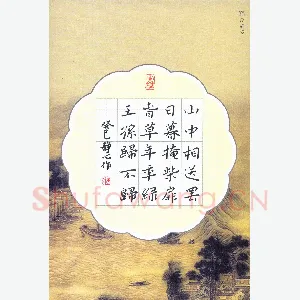 山中相送罷
日暮掩柴扉
春草年年綠
王孫歸不歸
癸巳靜之作
Shufawang.CN